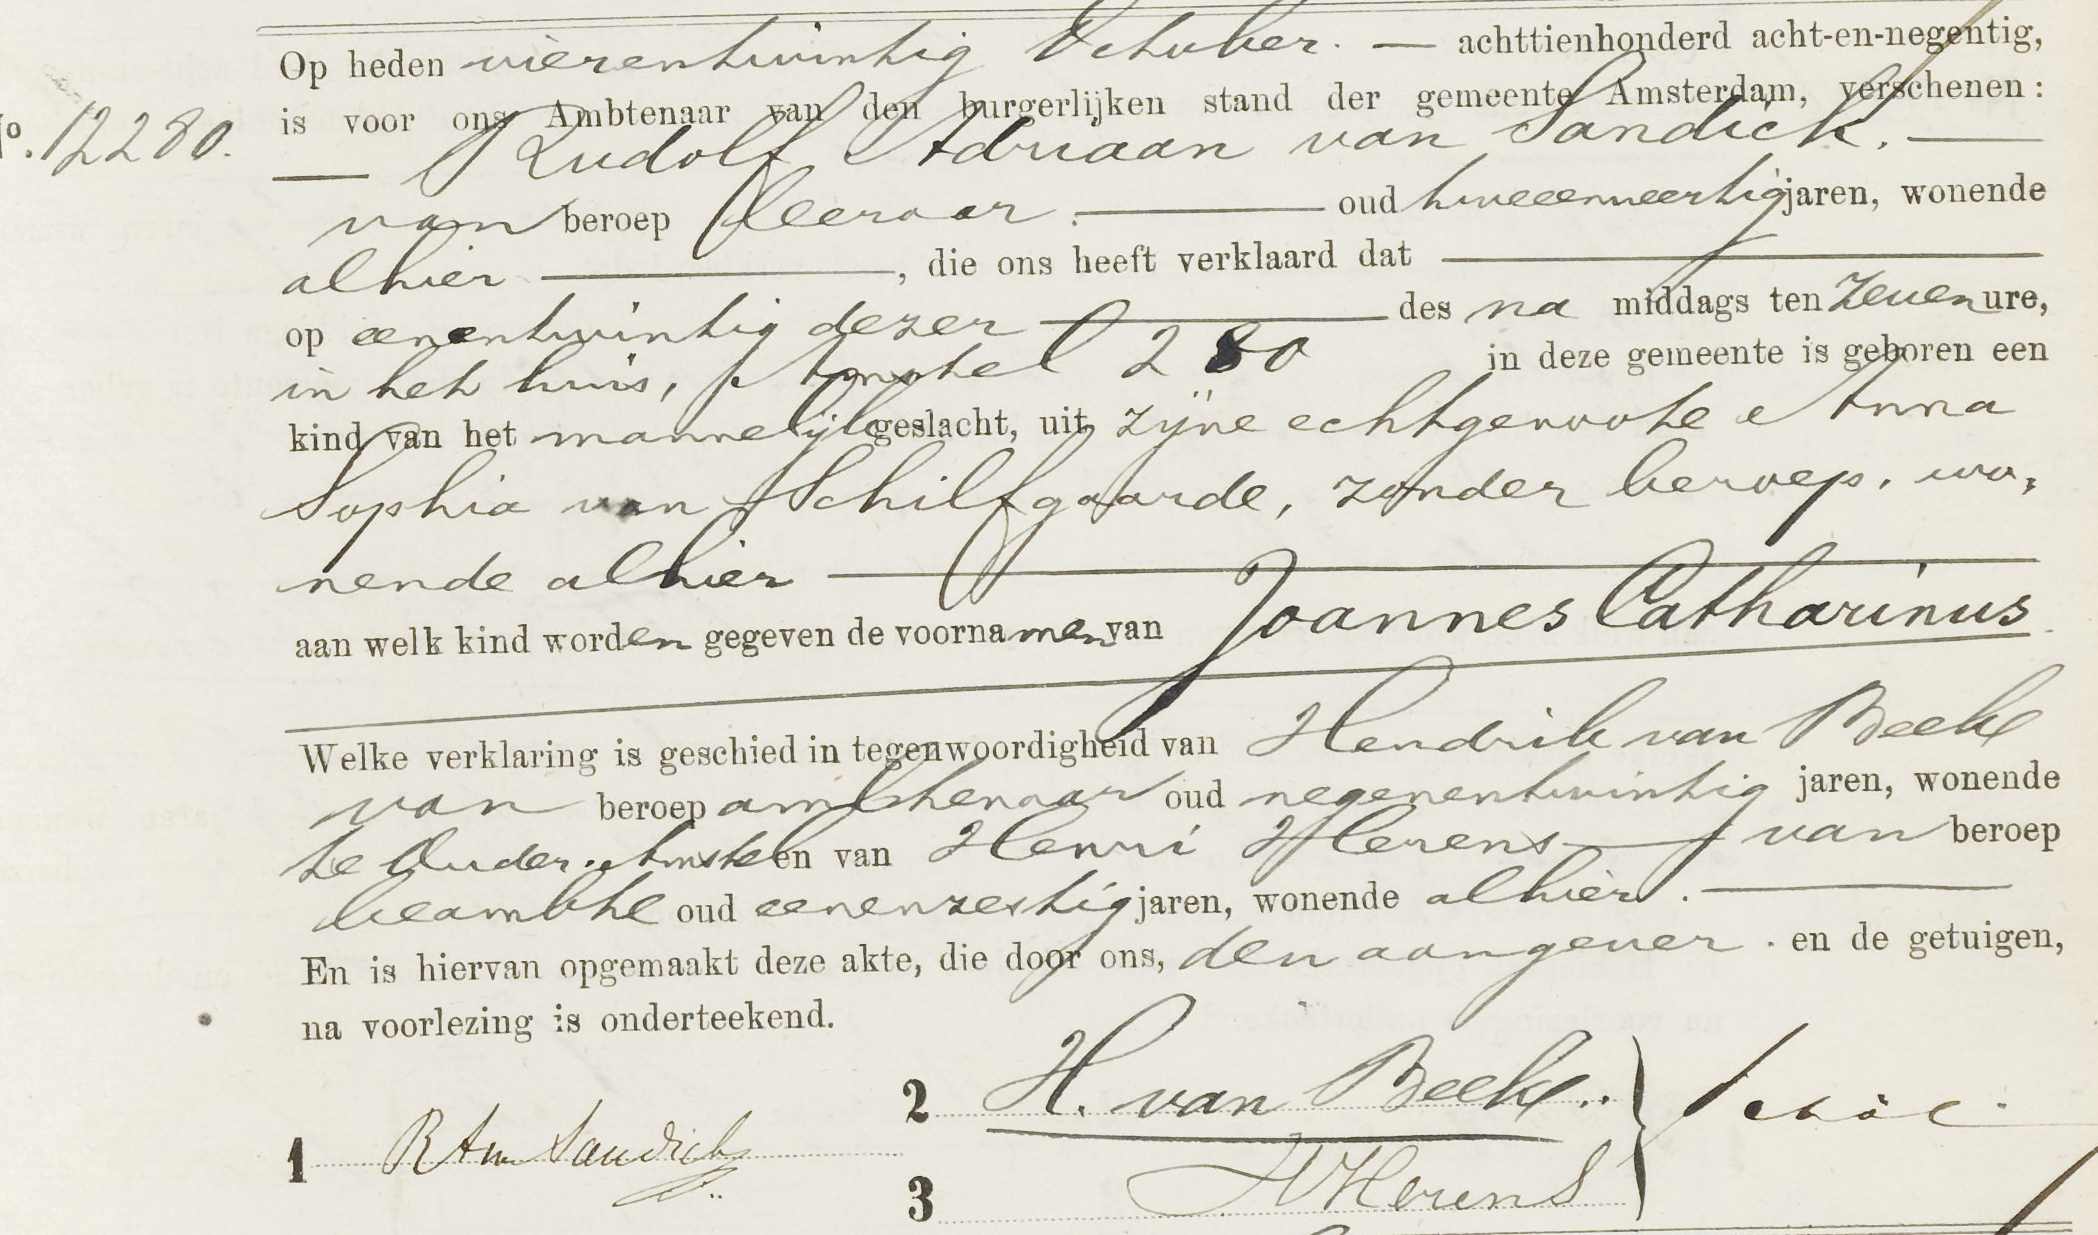 Op heden vierentwintig October. — achttienhonderd acht-en-negentig,
No. 12280. is voor ons Ambtenaar van den burgerlijken stand der gemeente Amsterdam, verschenen:
— Rudolf Adriaan van Sandick. —
van beroep leeraar. — oud tweeenveertig jaren, wonende
alhier —, die ons heeft verklaard dat —
op eenentwintig dezer — des na middags ten zeven ure,
in het huis, Amstel 280 in deze gemeente is geboren een
kind van het mannelijk geslacht, uit zijne echtgenoote Anna
Sophia van Schilfgaarde, zonder beroep, wo-
nende alhier —
aan welk kind worden gegeven de voornamen van Joannes Catharinus
Welke verklaring is geschied in tegenwoordigheid van Hendrik van Beek
van beroep ambtenaar oud negenentwintig jaren, wonende
te Ouder-Amstel en van Henri Herens — van beroep
beambte oud eenenzestig jaren, wonende alhier. —
En is hiervan opgemaakt deze akte, die door ons, den aangever. en de getuigen,
na voorlezing is onderteekend.
2 H. van Beek..
1 R A v Sandick
3 H Herens